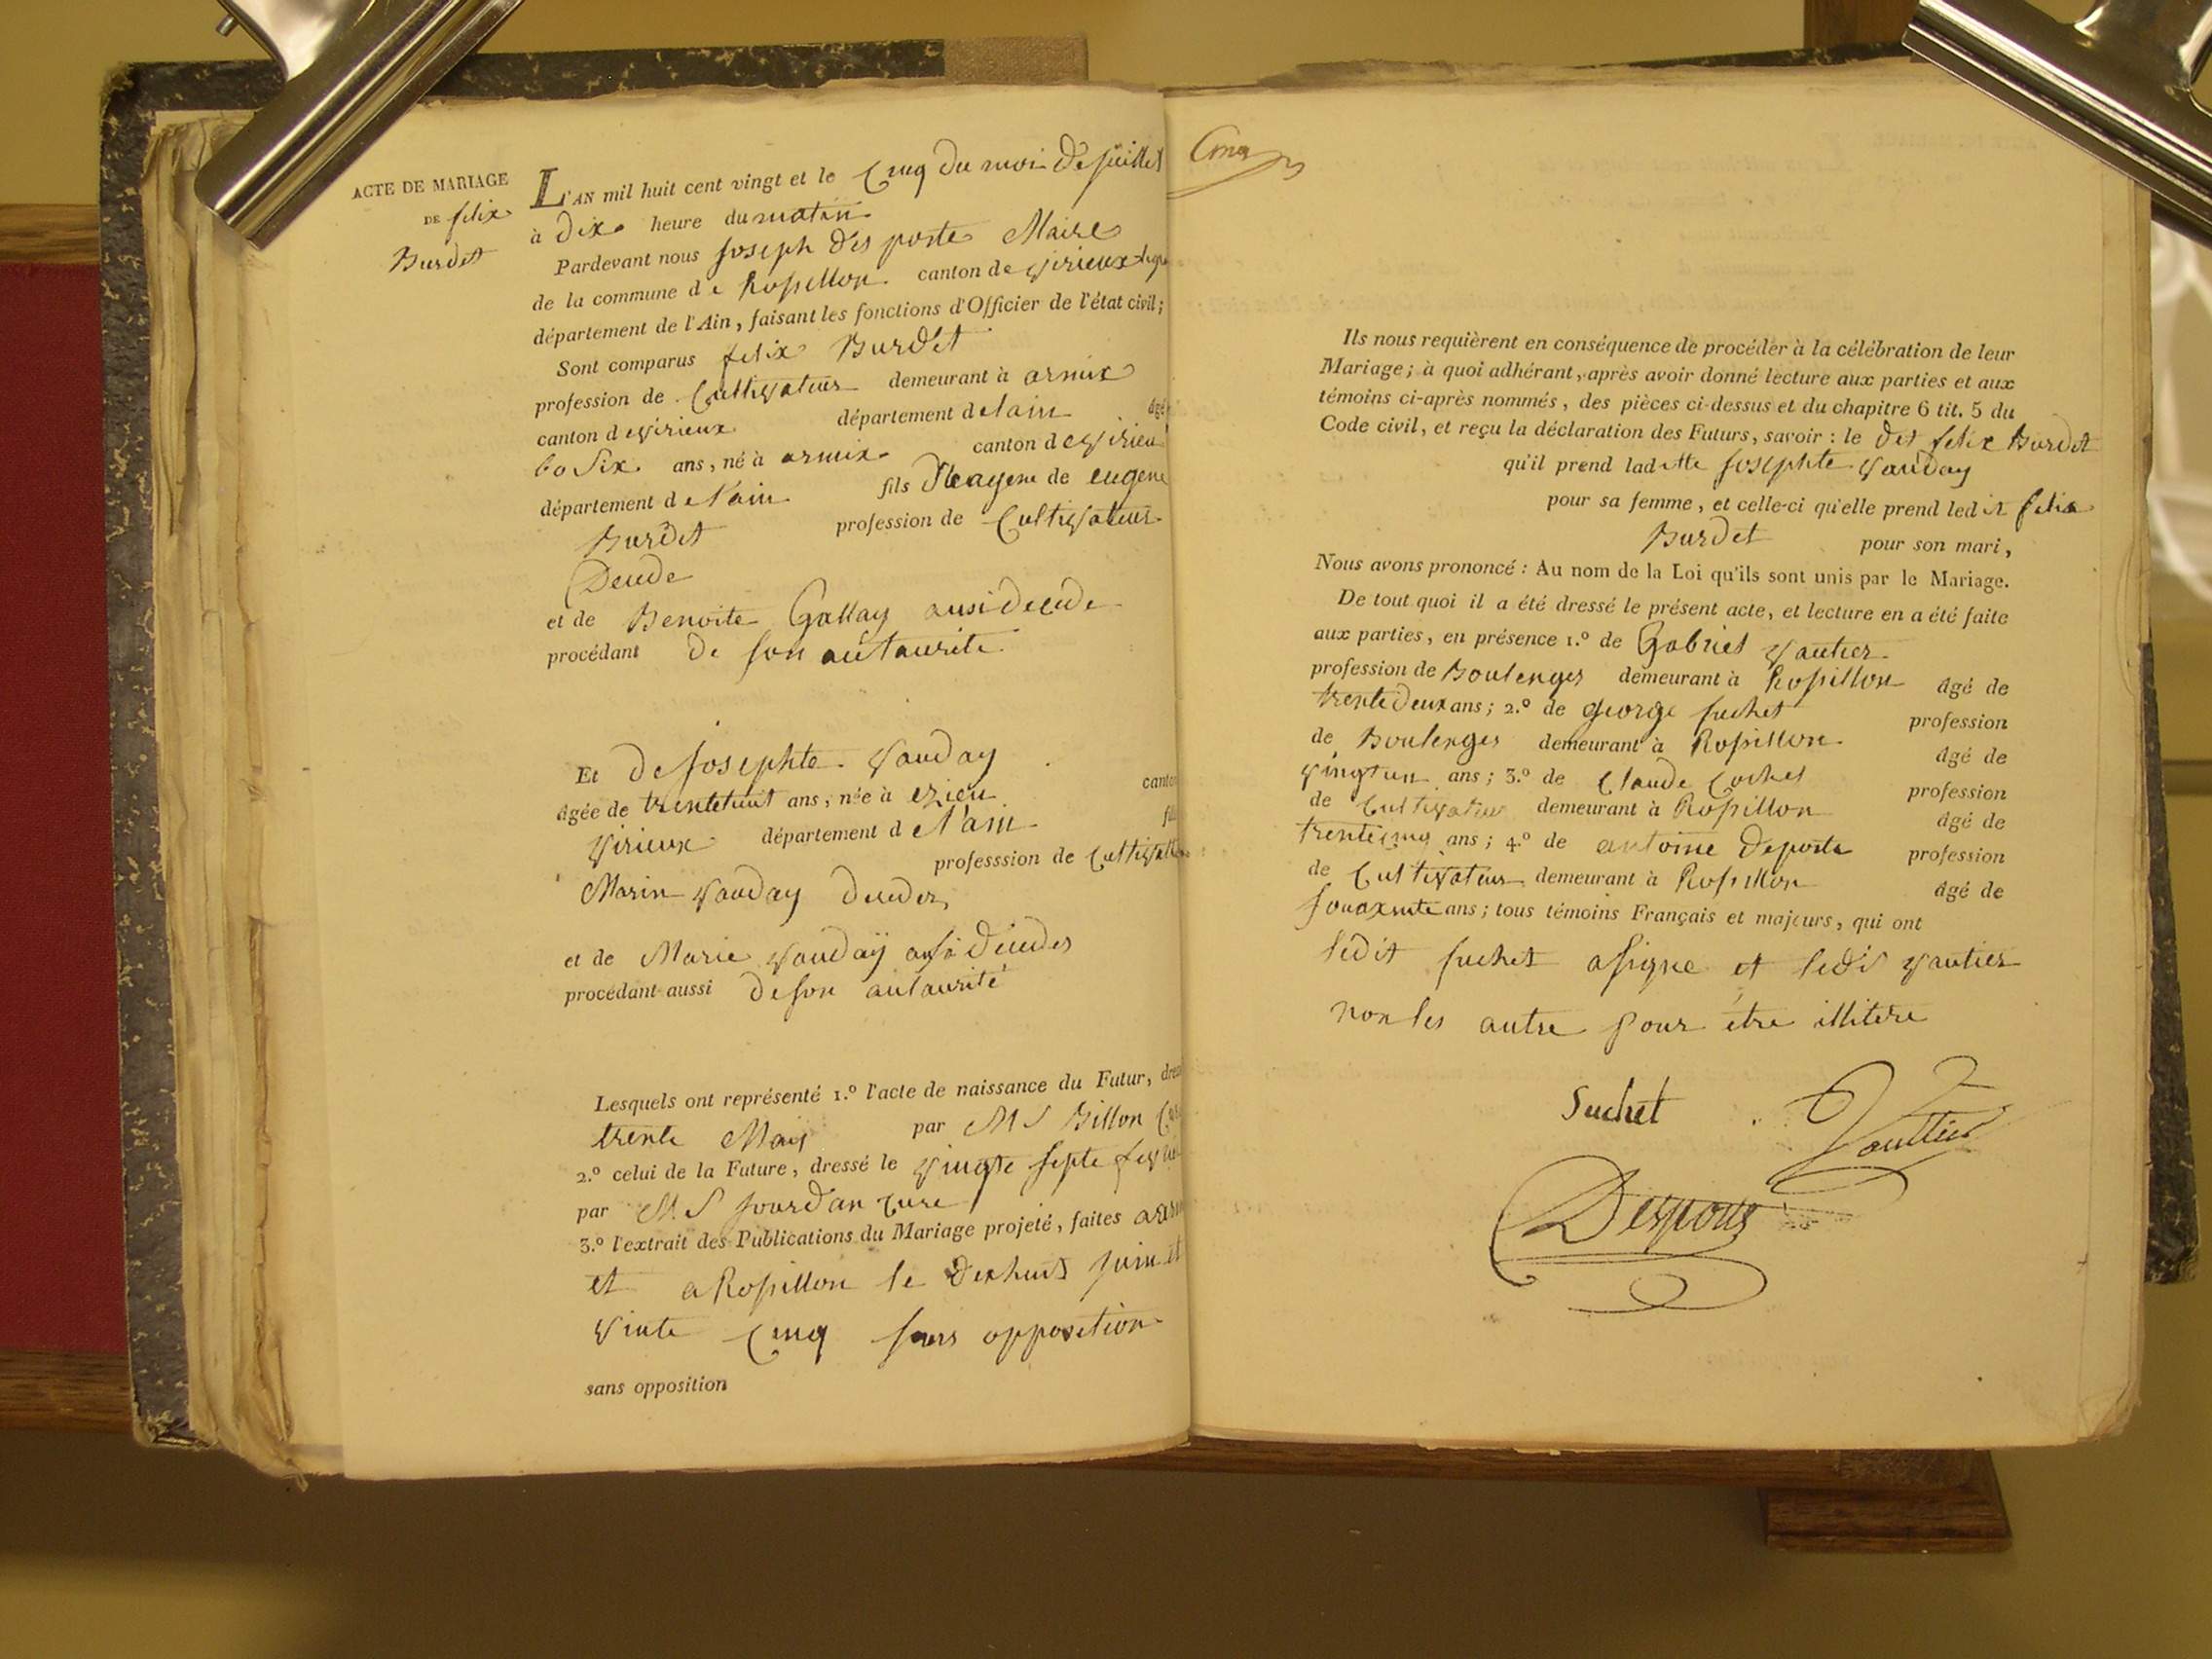 ACTE DE MARIAGE
DE felix
Burdet
L'AN mil huit cent vingt et le Cinq du moi de juillet
à dix heure du matin
Pardevant nous joseph des porte Maire
de la commune de Rossillon canton de virieux
département de l'Ain, faisant les fonctions d'Officier de l'état civil;
Sont comparus felix Burdet
profession de Cultivateur demeurant à armix
canton de virieux département de lain âgé
six ans, né à armix canton de virieu
département de l'ain fils de eugene
Burdet profession de Cultivateur
et de Benoite Gallay ausi decede
procédant de son autaurite
Et de josephte vauday
âgée de trentehuit ans, née à ezieu canton
virieux département de l'ain
professsion de Cultivat
Marin vauday decedes
et de Marie vauday assi decedes
procédant aussi de son autaurité
Lesquels ont représenté 1.º l'acte de naissance du Futur,
trente May par M S Billon
2.º celui de la Future, dressé le vingte septe
par M S jourdan Cure
3.º l'extrait des Publications du Mariage projeté, faites
et a Rossillon le dixhuit juin et
vinte Cinq sans opposition
sans opposition
Ils nous requièrent en conséquence de procéder à la célébration de leur
Mariage; à quoi adhérant, après avoir donné lecture aux parties et aux
témoins ci-après nommés, des pièces ci-dessus et du chapitre 6 tit. 5 du
Code civil, et reçu la déclaration des Futurs, savoir : le dit felix Burdet
qu'il prend ladite josephte vauday
pour sa femme, et celle-ci qu'elle prend ledit felix
Burdet pour son mari,
Nous avons prononcé : Au nom de la Loi qu'ils sont unis par le Mariage.
De tout quoi il a été dressé le présent acte, et lecture en a été faite
aux parties, en présence 1.º de Gabriel vautier
profession de Boulenger demeurant à Rossillon âgé de
trentedeux ans; 2.º de george suchet profession
de Boulenger demeurant à Rossillon âgé de
vingtun ans; 3.º de Claude Cochet profession
de Cultivateur demeurant à Rossillon âgé de
trentecinq ans; 4.º de antoine deporte profession
de Cultivateur demeurant à Rossillon âgé de
souaxente ans; tous témoins Français et majeurs, qui ont
ledit suchet assigne et ledi vautier
non les autre pour être illitere
Suchet
Vauttier